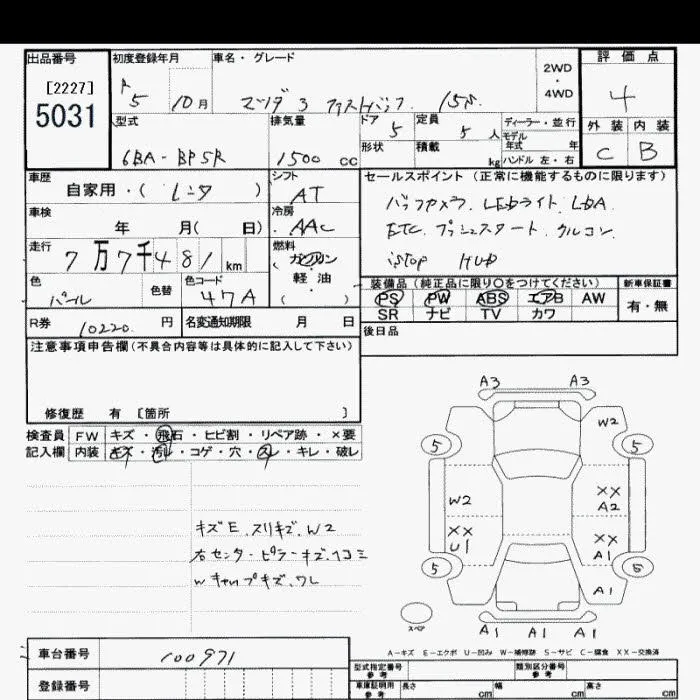 出品番号 初度登録年月 車名・グレード 2WD・4WD 評価点
[2227] 5031 R 5 10月 マツダ3 ファストバック 15S 4
型式 排気量 ドア 5 定員 5人 ディーラー・並行 外装 内装
6BA-BP5R 1500cc 形状 積載 kg モデル年式 年 ハンドル 左・右 C B
車歴 自家用・( レンタ ) シフト AT セールスポイント (正常に機能するものに限ります)
車検 年 月( 日) 冷房 AAC バックカメラ. LEDライト. LDA
走行 7万7千481km 燃料 ガソリン・軽油 ( ) ETC. プッシュスタート. クルコン.
iSTOP HUD
色 パール 色替 色コード 47A 装備品 (純正品に限り○をつけてください) 新車保証書
PS PW ABS エアB AW 有・無
SR ナビ TV カワ
R券 10220 円 名変通知期限 月 日 後日品
注意事項申告欄(不具合内容等は具体的に記入して下さい)
修復歴 有 [箇所 ]
検査員 FW キズ・飛石・ヒビ割・リペア跡・×要
記入欄 内装 キズ・汚レ・コゲ・穴・スレ・キレ・破レ
A3 A3
W2
5 5
W2 XX A2
XX U1 XX A1
5 5
A1
スペア A1 A1 A1
キズE. スリキズ. W2
右センターピラーキズ. ヘコミ
Wキャップキズ. ワレ
A-キズ E-エクボ U-凹み W-補修跡 S-サビ C-腐食 XX-交換済
車台番号 100971 型式指定番号 参考 類別区分番号 参考
登録番号 車庫証明用 参考 長さ cm 幅 cm 高さ cm